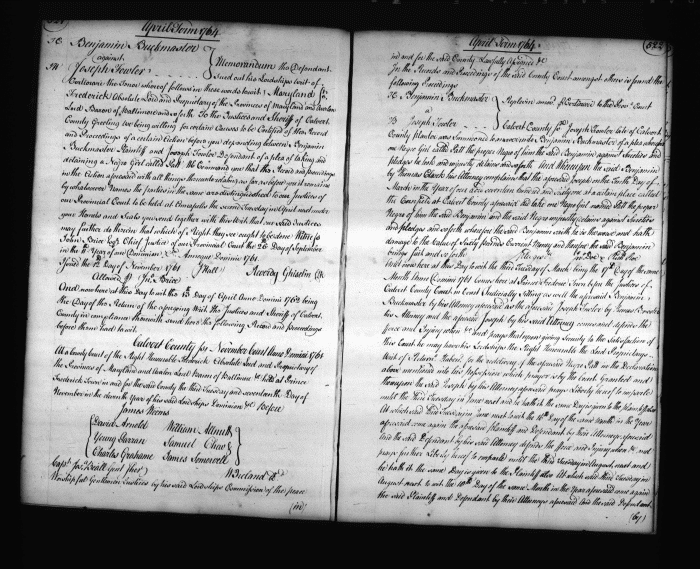 April Term 1764
Benjamin Buckmaster
against
Joseph Fowler
Memorandum the Defendant
Sued out his Lordships writ of
Certiorari the Tenor whereof follows in these words to wit Maryland
Frederick Absolute Lord and Proprietary of the Provinces of Maryland and Avalon
Lord Baron of Baltimore and so forth To the Justices and Sheriff of Calvert
County Greeting for being willing for certain Causes to be Certified of the Record
and Proceedings of a certain Action before you depending between Benjamin
Buckmaster Plaintiff and Joseph Fowler Defendant of a plea of taking and
detaining a Negro Girl called We Command you that the Record and proceedings
in the Action aforesaid with all things thereunto relating as before you it remains
by whatsoever Names the parties in the same are distinguished to our Justices of
our Provincial Court to be held at Annapolis the second Tuesday in April next under
your Hands and Seals you send together with this Writ that our said Justices
may further do therein that which of Right they see ought to be done Witness
John Brice Esqr Chief Justice of our Provincial Court the 26th Day of September
in the Year of our Dominion &c Annoque Domini 1761
Issued the Day of November 1761
Reverdy Ghiselin Clk
Allowed Jno Brice
And now here at this Day to wit the Day of April Anno Domini 1762 being
the Day of the Return of the aforegoing Writ the Justices and Sheriff of Calvert
County in complyance therewith send here the following Record and proceedings
before them had to wit
Calvert County for November Court Anno Domini 1761
At a County Court of the Right Honourable Frederick Absolute Lord and Proprietary of
the Provinces of Maryland and Avalon Lord Baron of Baltimore &c held at Prince
Frederick Town in and for the said County the third Tuesday and seventeenth Day of
November in the eleventh Year of his said Lordships Dominion &c Before
James Weems
David Arnold William Allnutt
Young Parran Samuel Chew
Charles Grahame James Somervell
W Ireland
Worshipful Gentlemen Justices by his said Lordships Commission of the peace
(in)
April Term 1764
522
in and for the said County Lawfully Assigned &c
In the Records and Proceedings of the said County Court amongst others is found the
following Proceedings
Benjamin Buckmaster
Joseph Fowler
Calvert County Joseph Fowler late of Calvert
County Planter was Summoned to answer unto Benjamin Buckmaster of a plea wherefore
one Negro Girl called the proper Negro of him the said Benjamin against Sureties and
pledges he took and unjustly detains and so forth And Whereupon the said Benjamin
by Thomas Clark his Attorney complains that the aforesaid Joseph on the Fourth Day of
March in the Year of our Lord seventeen hundred and Sixty one at a certain place called
in Calvert County aforesaid did take one Negro Girl named the proper
Negro of him the said Benjamin and the said Negro unjustly detains against Sureties
and pledges and so forth wherefore the said Benjamin saith he is the worse and hath
damage to the value of Current Money and therefore the said Benjamin
brings suit and so forth
And now here at this Day to wit the third Tuesday of March being the 17th Day of the same
Month Anno Domini 1761 comes here at Prince Frederick Town before the Justices of
Calvert County Court in Court Judicially Sitting as well the aforesaid Benjamin
Buckmaster by his Attorney aforesaid as the aforesaid Joseph Fowler by James
his Attorney and the aforesaid Joseph by his said Attorney comes and defends the
force and Injury when &c and prays that upon giving Security to the Satisfaction of
this Court he may have his Lordships the Right Honourable the Lord Proprietarys
Writ of for the redelivery of the aforesaid Negro in the Declaration
above mentioned into his Possession which prayer is by the Court Granted and
thereupon the said Joseph by his Attorney aforesaid prays Liberty hereof to imparle
until the third Tuesday in June next and he hath it the same Day is given to the plaintiff also
At which said third Tuesday in June next to wit the 16th Day of the same Month in the Year
aforesaid come again the aforesaid Plaintiff and Defendant by their Attorneys aforesaid
And the said Defendant by his said Attorney defends the force and Injury when &c and
prays further Liberty hereof to imparle until the third Tuesday in August next and
he hath it the same Day is given to the Plaintiff also At which said third Tuesday in
August next to wit the Day of the same Month in the Year aforesaid come again
the said Plaintiff and Defendant by their Attorneys aforesaid And the said Defendant
(by)